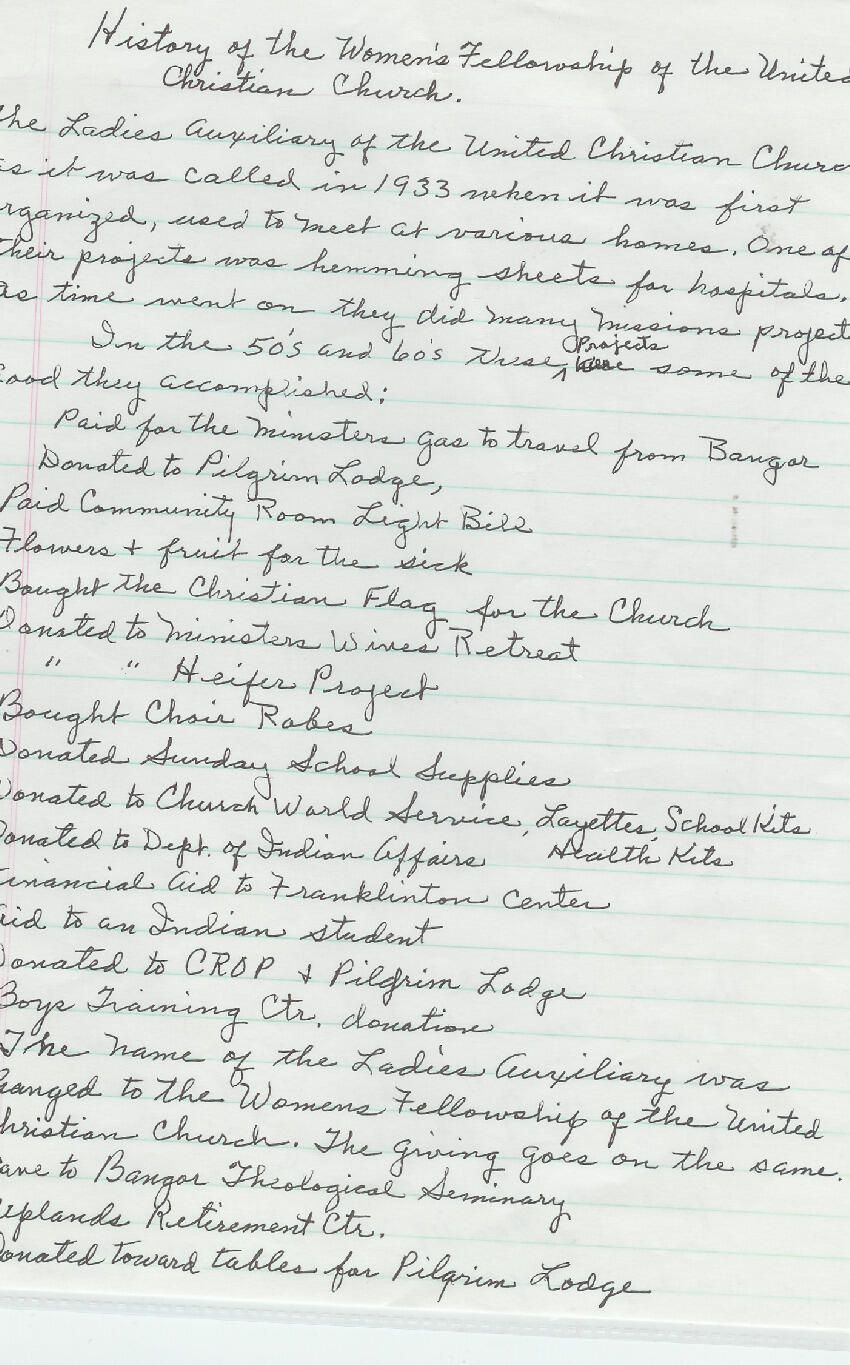 History of the Women's Fellowship of the United
Christian Church.
the Ladies Auxiliary of the United Christian Churc
as it was called in 1933 when it was first
rganized, used to meet at various homes. One of
their projects was hemming sheets for hospitals.
As time went on they did many missions project
In the 50's and 60's these Projects some of the
Good they accomplished:
Paid for the Ministers gas to travel from Bangor
Donated to Pilgrim Lodge,
Paid Community Room Light Bill
Flowers + fruit for the sick
Bought the Christian Flag for the Church
Donated to Ministers Wives Retreat
" " Heifer Project
Bought Choir Robes
Donated Sunday School Supplies
Donated to Church World Service, Layettes, School Kits
Donated to Dept. of Indian Affairs Health Kits
Financial Aid to Franklinton Center
Aid to an Indian student
Donated to CROP & Pilgrim Lodge
Boys Training Ctr. donation
The name of the Ladies Auxiliary was
hanged to the Womens Fellowship of the United
hristian Church. The giving goes on the same.
ave to Bangor Theological Seminary
Uplands Retirement Ctr.
Donated toward tables for Pilgrim Lodge